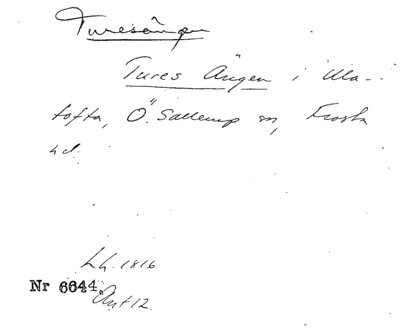 Turesängen
Tures Ängen i Ula-
tofta, Ö. Sallerup sn, Frosta
hd.
Lh. 1816
Nr 6644.
Akt 12.